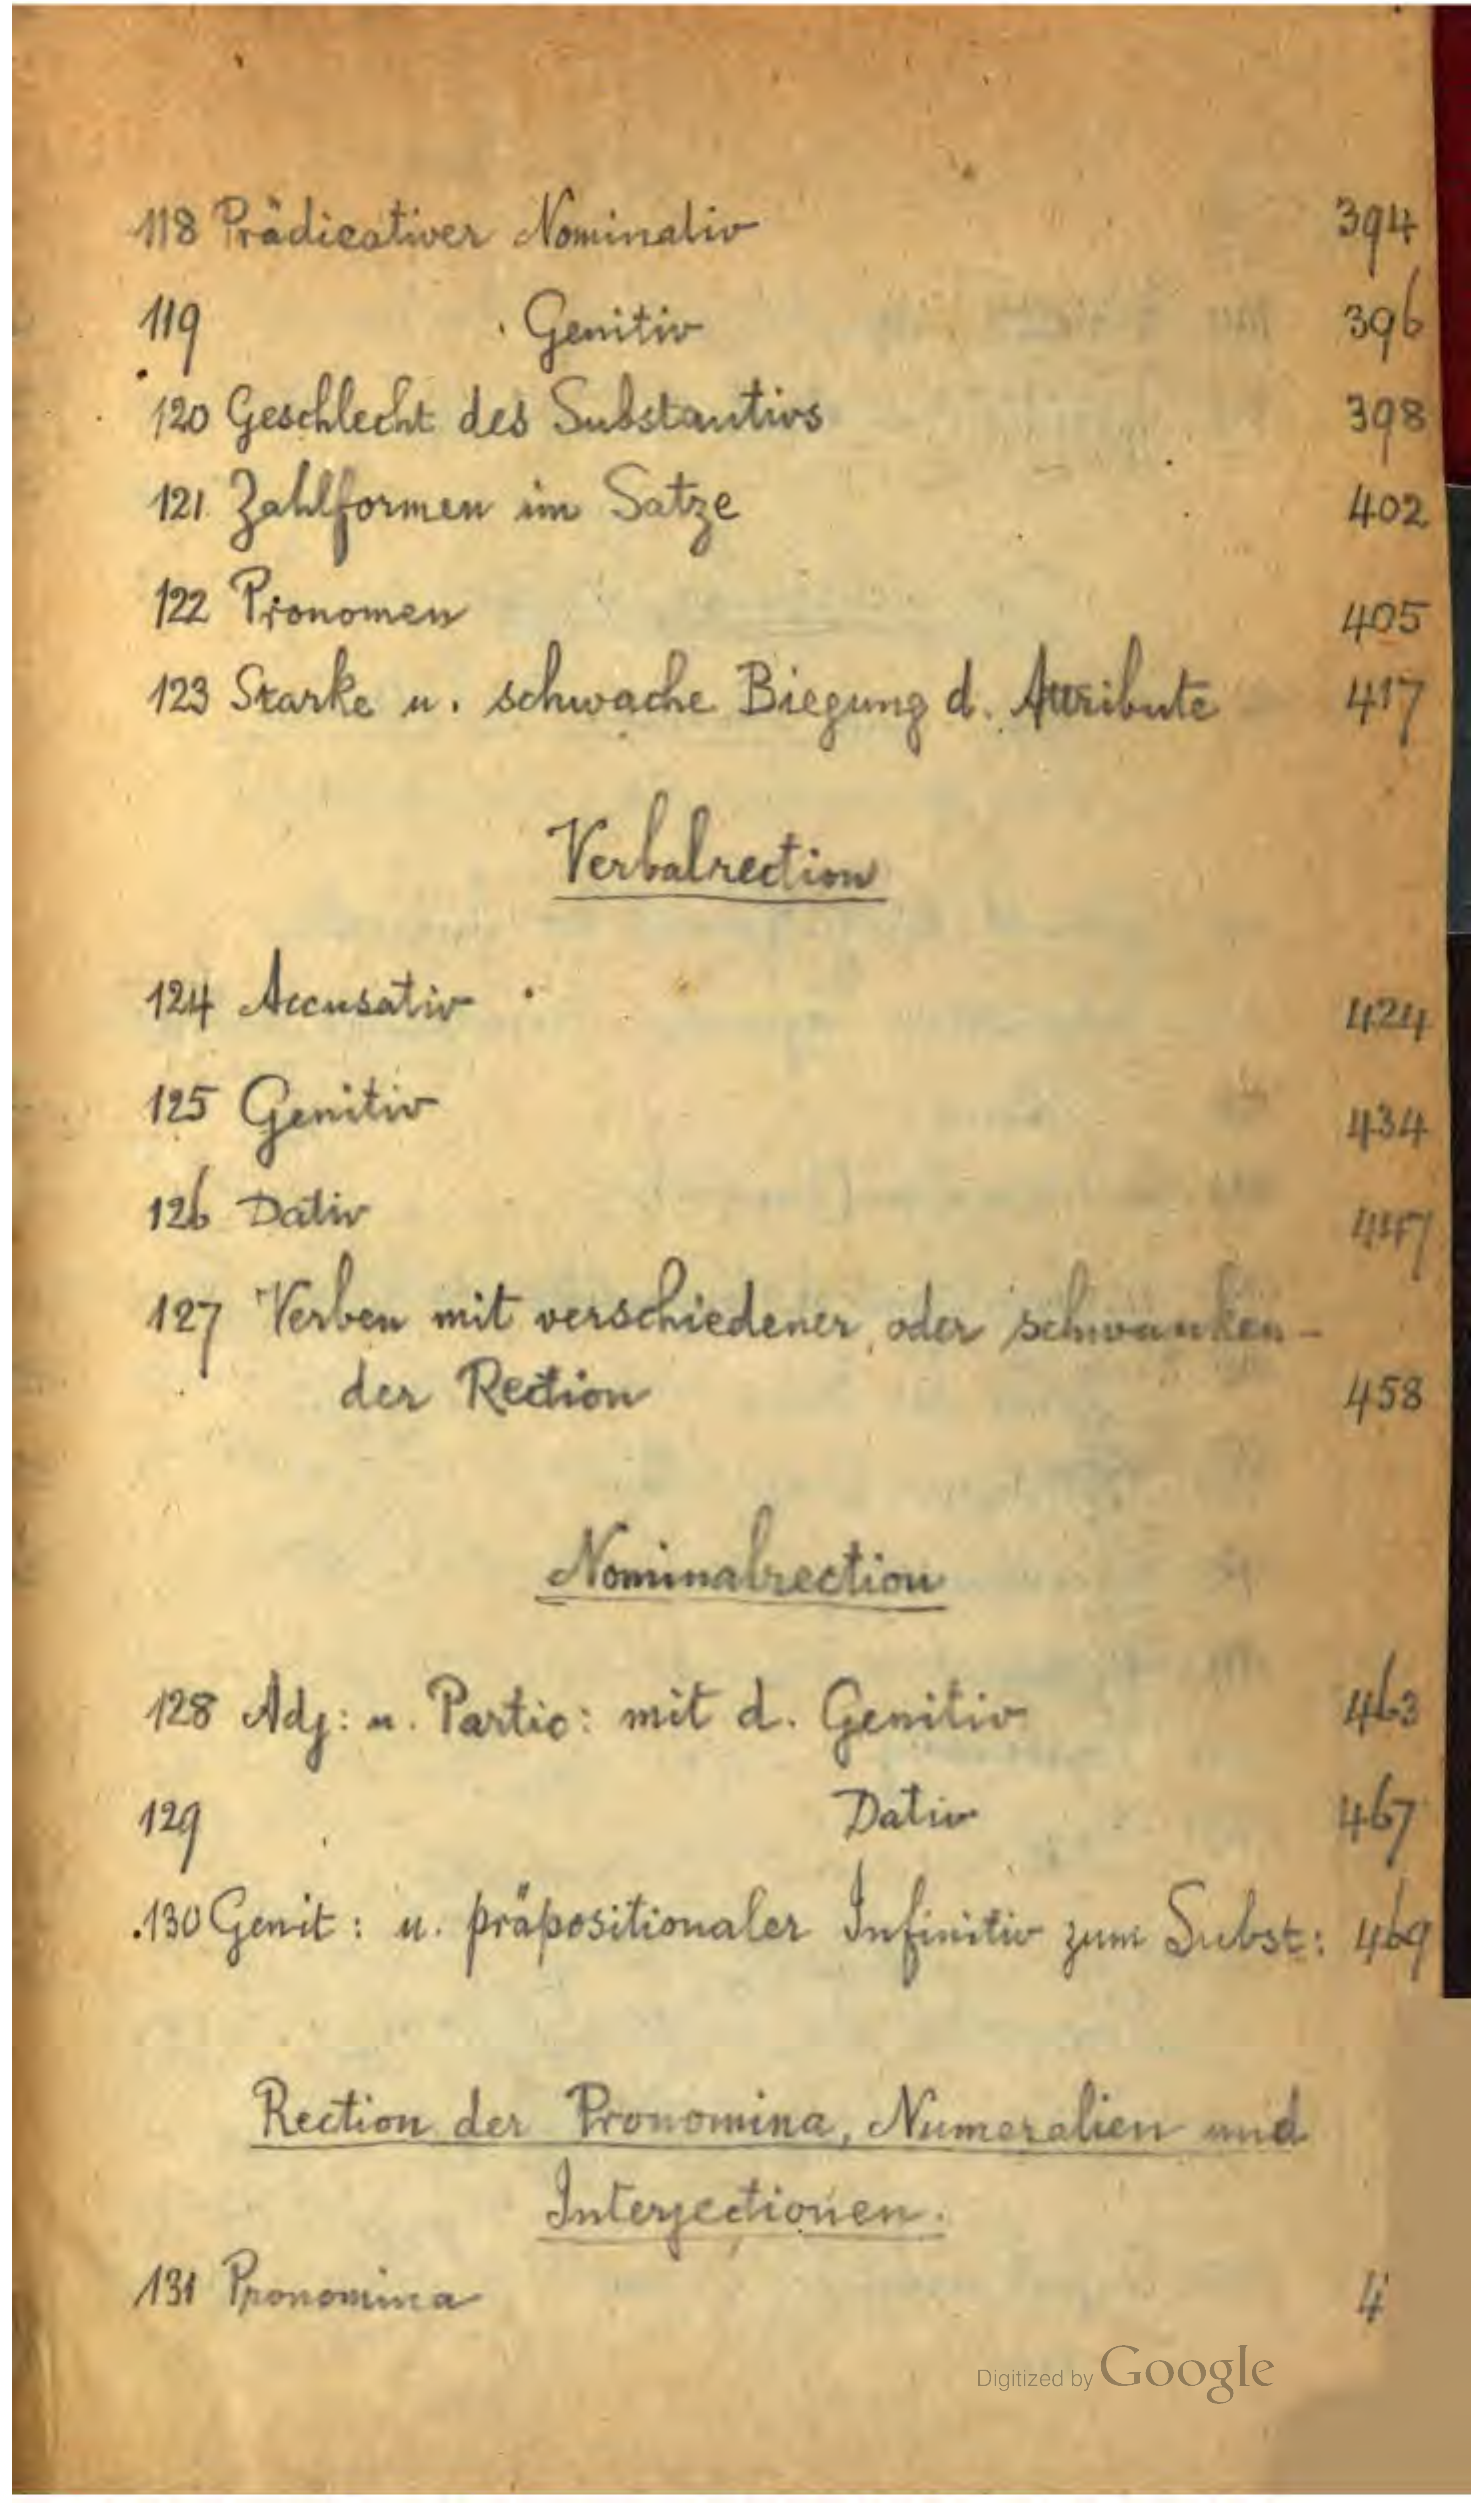 118 Prädicativer Nominativ 394
119 Genitiv 396
120 Geschlecht des Substantivs 398
121 Zahlformen im Satze 402
122 Pronomen 405
123 Starke u. schwache Biegung d. Attribute 417
Verbalrection
124 Accusativ 424
125 Genitiv 434
126 Dativ 447
127 Verben mit verschiedener oder schwanken-
der Rection 458
Nominalrection
128 Adj: u. Partic: mit d. Genitiv 463
129 Dativ 467
130 Genit: u. präpositionaler Infinitiv zum Subst: 469
Rection der Pronomina, Numeralien und
Interjectionen.
131 Pronomina 4
Digitized by Google